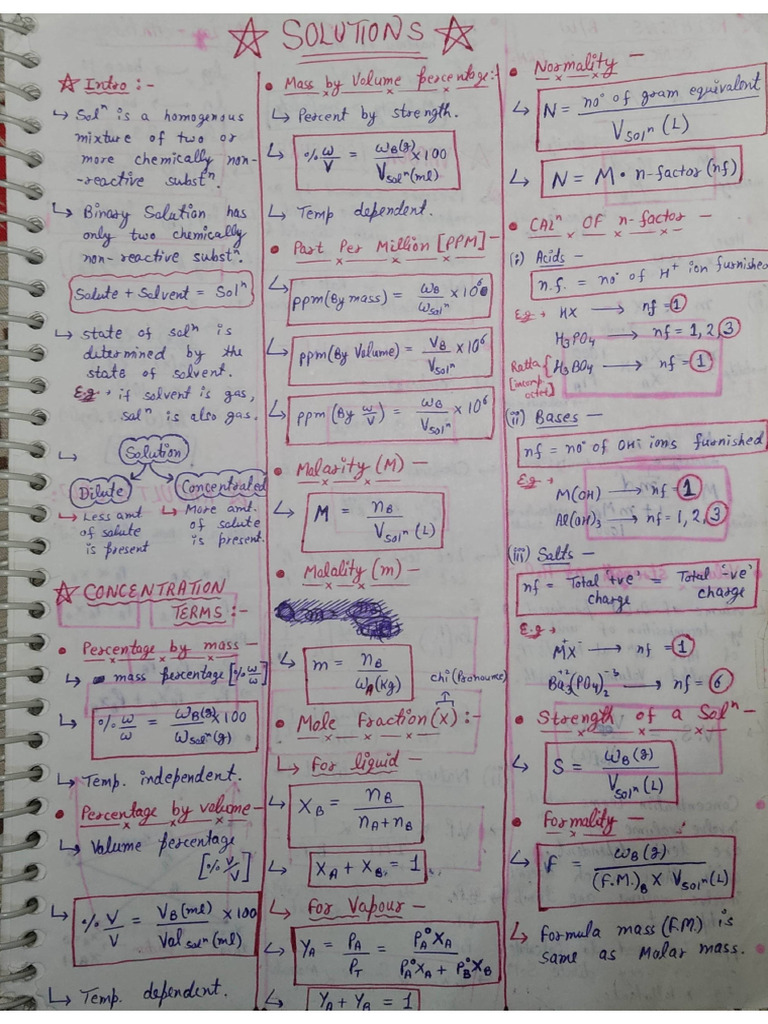 SOLUTIONS
Intro :-
↳ Solⁿ is a homogenous
mixture of two or
more chemically non-
-reactive substⁿ.
↳ Binary Solution has
only two chemically
non-reactive substⁿ.
Solute + Solvent = Solⁿ
↳ state of solⁿ is
determined by the
state of solvent.
E.g → if solvent is gas,
solⁿ is also gas.
↳ Solution
Dilute
Concentrated
→ Less amt
of solute
is present
→ More amt.
of solute
is present.
CONCENTRATION
TERMS :-
• Percentage by mass —
↳ mass percentage [% w/w]
↳ % w/w = ω_B(g) / ω_solⁿ(g) × 100
↳ Temp. independent.
• Percentage by volume —
↳ Volume percentage
[% V/V]
↳ % V/V = V_B(ml) / Vol_solⁿ(ml) × 100
↳ Temp. dependent.
• Mass by Volume percentage :-
↳ Percent by strength.
↳ % w/V = ω_B(g) / V_solⁿ(ml) × 100
↳ Temp dependent.
• Part Per Million [PPM] —
↳ ppm (By mass) = ω_B / ω_solⁿ × 10⁶
↳ ppm (By Volume) = V_B / V_solⁿ × 10⁶
↳ ppm (By w/V) = ω_B / V_solⁿ × 10⁶
• Molarity (M) —
↳ M = n_B / V_solⁿ (L)
• Molality (m) —
↳ m = n_B / ω_A (Kg)
chi (Pronounce)
• Mole Fraction (X) :-
↳ For liquid —
↳ X_B = n_B / n_A + n_B
↳ X_A + X_B = 1
↳ For Vapour —
↳ Y_A = P_A / P_T = P°_A X_A / P°_A X_A + P°_B X_B
↳ Y_A + Y_B = 1
• Normality —
↳ N = no° of gram equivalent / V_solⁿ (L)
↳ N = M • n-factor (nf)
• CALⁿ OF n-factor —
(i) Acids —
n.f. = no° of H⁺ ion furnished
E.g → HX → nf = 1
H₃PO₄ → nf = 1, 2, 3
Ratta
H₃BO₃ → nf = 1
(ii) Bases —
nf = no° of OH⁻ ions furnished
E.g →
M(OH) → nf = 1
Al(OH)₃ → nf = 1, 2, 3
(iii) Salts —
nf = Total '+ve' charge = Total '-ve' charge
E.g →
M⁺X⁻ → nf = 1
Ba₃⁺²(PO₄)₂⁻³ → nf = 6
• Strength of a Solⁿ —
↳ S = ω_B (g) / V_solⁿ (L)
• Formality —
↳ f = ω_B (g) / (F.M.)_B × V_solⁿ (L)
↳ Formula mass (F.M.) is
same as Molar mass.